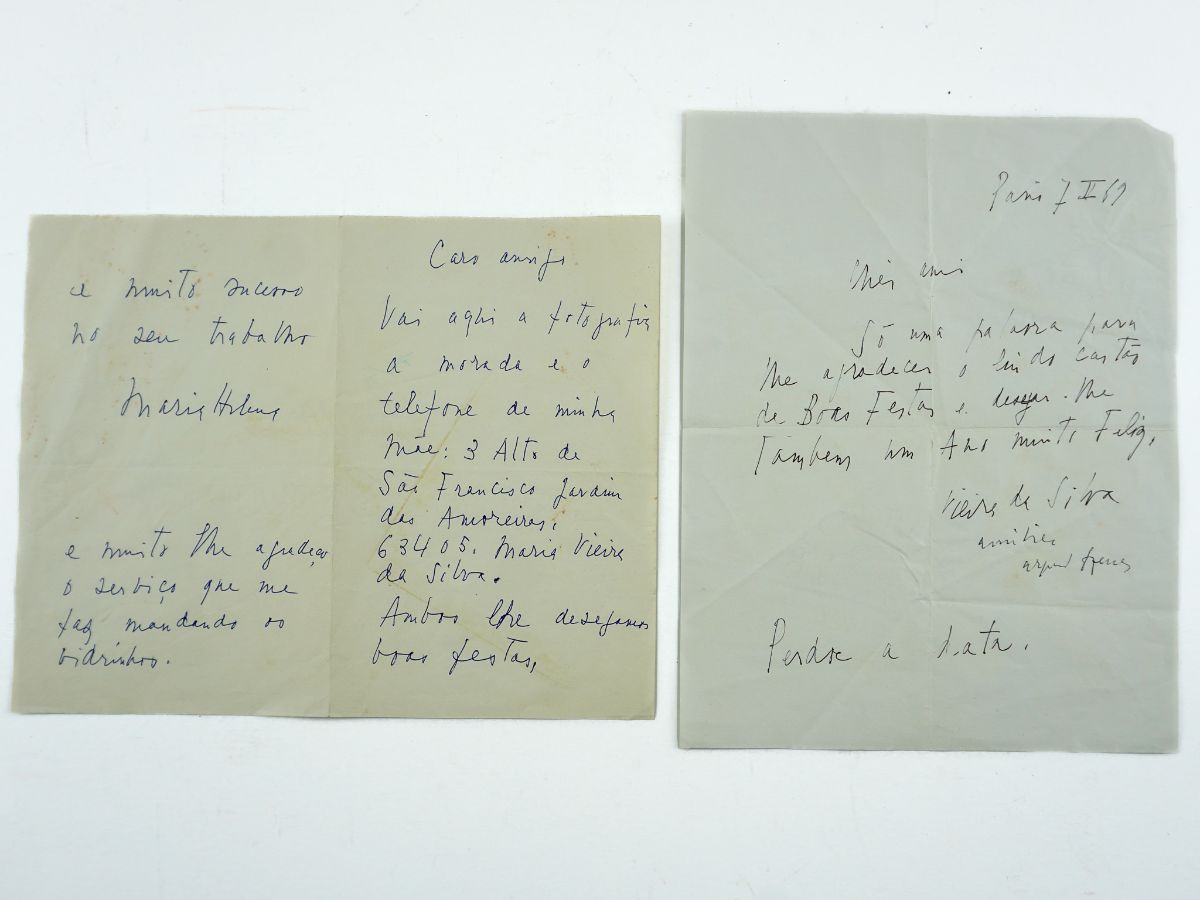 Caro amigo
Vai aqui a fotografia
a morada e o
telefone de minha
Mãe: 3 Alto de
São Francisco Jardim
das Amoreiras,
63405. Maria Vieira
da Silva.
Ambos lhe desejamos
boas festas,
e muito sucesso
no seu trabalho
Maria Helena
e muito lhe agradeço
o serviço que me
faz mandando os
vidrinhos.
Paris 7 II 69
ami
Só uma palavra para
lhe agradecer o lindo cartão
de Boas Festas e desejar-lhe
também um Ano muito Feliz,
Vieira da Silva
arpad szenes
Perdoe a data.